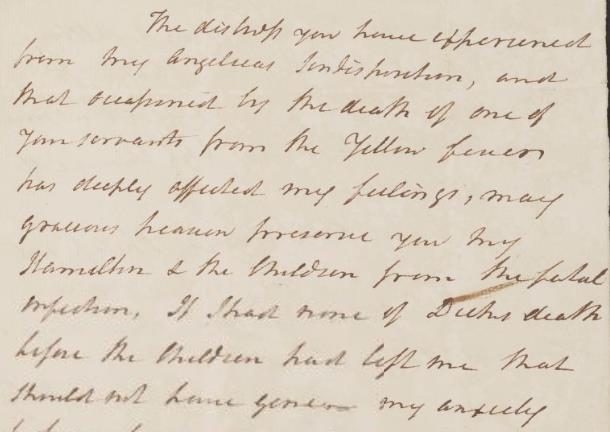 The distress you have experienced
from my Angelicas Indisposition, and
that occasioned by the death of one of
your servants from the Yellow fever
has deeply affected my feelings, may
gracious heaven preserve you my
Hamilton & the Children from the fatal
infection, If I had none of death
before the Children had left me that
should not have my anxiety